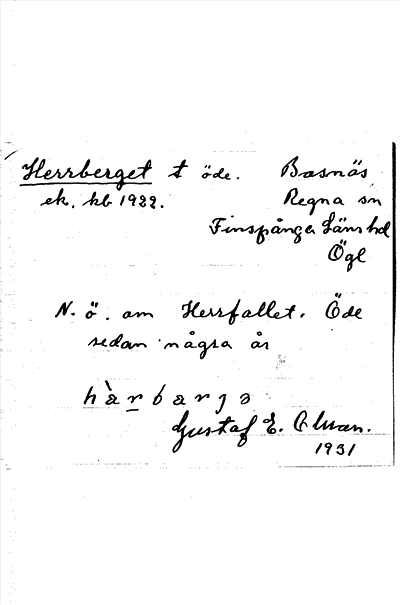 Herrberget t öde. Basnäs
ek. kb 1922. Regna sn
Finspånga Läns hd
Ögl
N. ö. om Herrfallet. Öde
sedan några år
Gustaf E.
1931